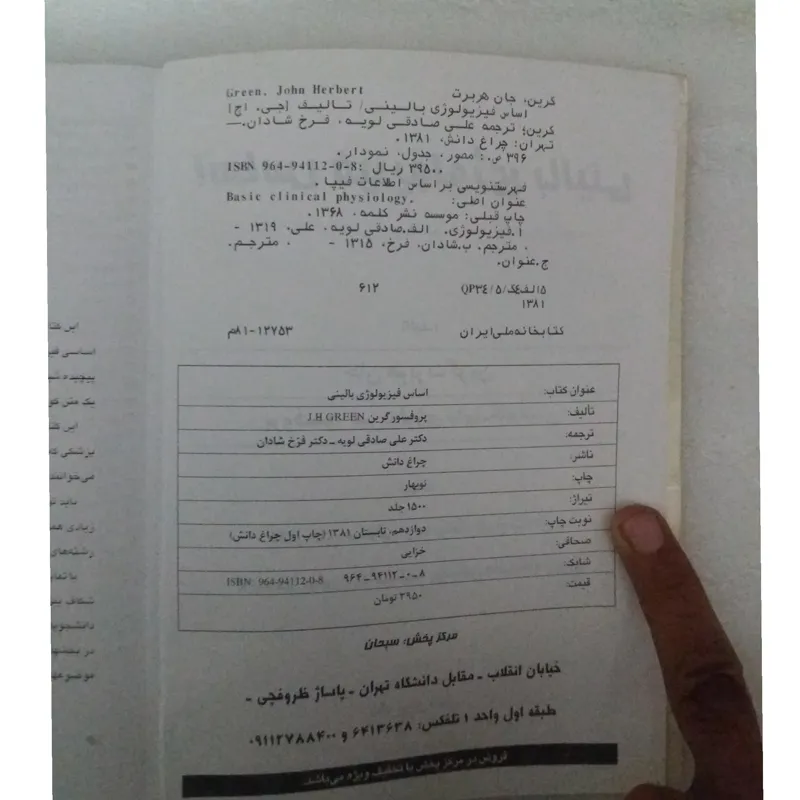 گرین، جان هربرت Green, John Herbert
اساس فیزیولوژی بالینی/ تالیف [جی. اچ]
گرین؛ ترجمه علی صادقی لویه، فرخ شادان.—
تهران: چراغ دانش، ۱۳۸۱.
۳۹۶ ص.: مصور، جدول، نمودار.
ISBN 964-94112-0-8: ۳۹۵۰۰ ریال
فهرستنویسی براساس اطلاعات فیپا.
عنوان اصلی: Basic clinical physiology.
چاپ قبلی: موسسه نشر کلمه، ۱۳۶۸.
۱.فیزیولوژی. الف.صادقی لویه، علی، ۱۳۱۹ -
، مترجم. ب.شادان، فرخ، ۱۳۱۵ - ، مترجم.
ج.عنوان.
۵الف۴گ/۵/QP۳٤ ۶۱۲
۱۳۸۱
کتابخانه ملی ایران ۸۱-۱۲۷۵۳م
عنوان کتاب: اساس فیزیولوژی بالینی
تألیف: پروفسور گرین J.H GREEN
ترجمه: دکتر علی صادقی لویه ـ دکتر فرّخ شادان
ناشر: چراغ دانش
چاپ: نوبهار
تیراژ: ۱۵۰۰ جلد
نوبت چاپ: دوازدهم، تابستان ۱۳۸۱ (چاپ اول چراغ دانش)
صحافی: خزایی
شابک: ۸-۰-۹۴۱۱۲-۹۶۴ ISBN: 964-94112-0-8
قیمت: ۳۹۵۰ تومان
مرکز پخش: سبحان
خیابان انقلاب ـ مقابل دانشگاه تهران ـ پاساژ ظروفچی ـ
طبقه اول واحد ۱ تلفکس: ۶۴۱۳۶۳۸ و ۰۹۱۱۲۷۸۸۴۰۰
فروش در مرکز پخش با تخفیف ویژه می‌باشد.
این کتا
اساسی فیز
پیچیده ش
یک متن کو
این کتا
پزشکی که
می‌توانند
زیادی هم
رشته‌های
با تما
شکاف بی
دانشجوی
در بخشه
موضوعه